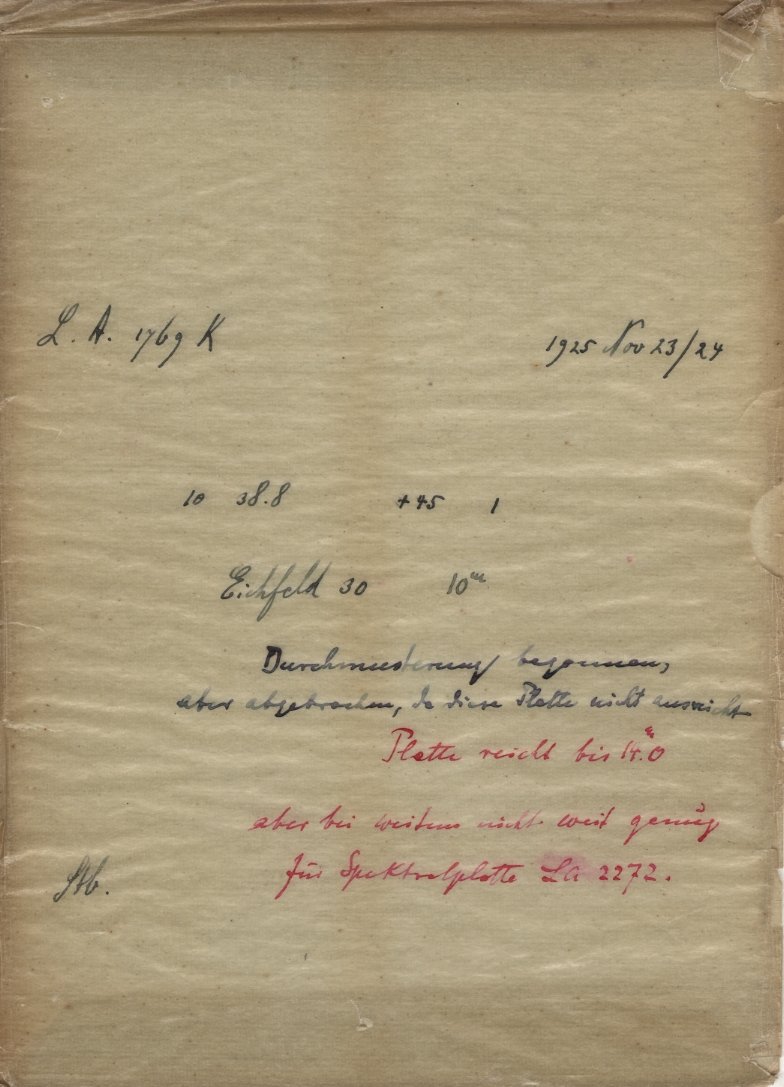 L. A. 1769 K 1925 Nov 23/24
10 38.8 +45 1
Eichfeld 30 10ᵐ
Durchmusterung begonnen,
aber abgebrochen, da diese Platte nicht ausreicht
Platte reicht bis 14ᵐ.0
aber bei weitem nicht weit genug
für Spektralplatte LA 2272.
Stb.